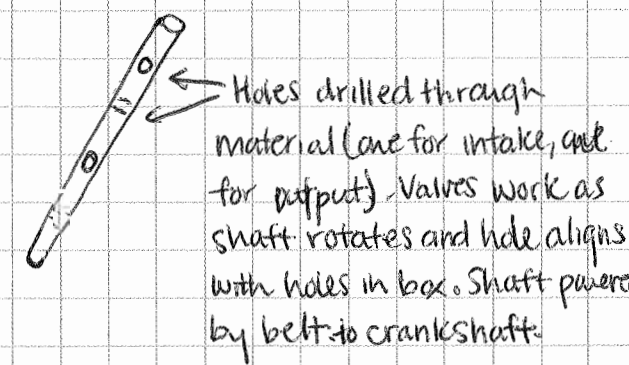 Holes drilled through
material (one for intake, one
for output). Valves work as
shaft rotates and hole aligns
with holes in box. Shaft powere
by belt to crankshaft.